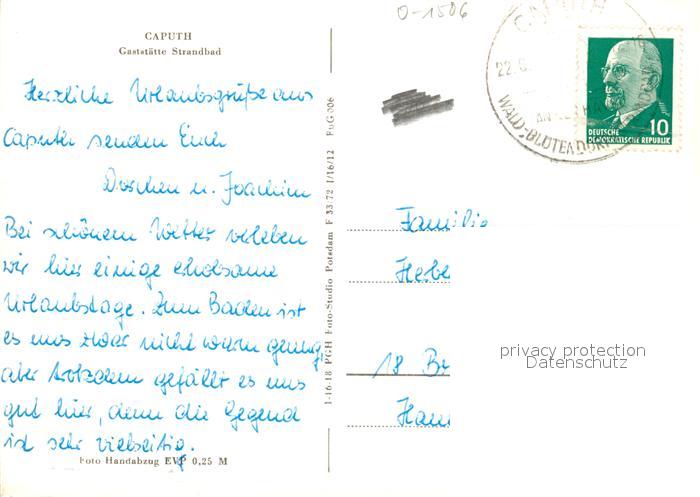 O-1506
CAPUTH
Gaststätte Strandbad
Herzliche Urlaubsgrüße aus
Caputh senden Euch
Dorchen u. Joachim
Bei schönem Wetter verleben
wir hier einige erholsame
Urlaubstage. Zum Baden ist
es uns zwar nicht warm genug,
aber trotzdem gefällt es uns
gut hier, denn die Gegend
ist sehr vielseitig.
Foto-Handabzug EVP 0,25 M
1-16-18 PGH Foto-Studio Potsdam F 33/72 I/16/12 FuG 006
CAPUTH
22.6.
WALD-BLÜTENDORF
DEUTSCHE
DEMOKRATISCHE REPUBLIK
10
Familie
18
privacy protection
Datenschutz